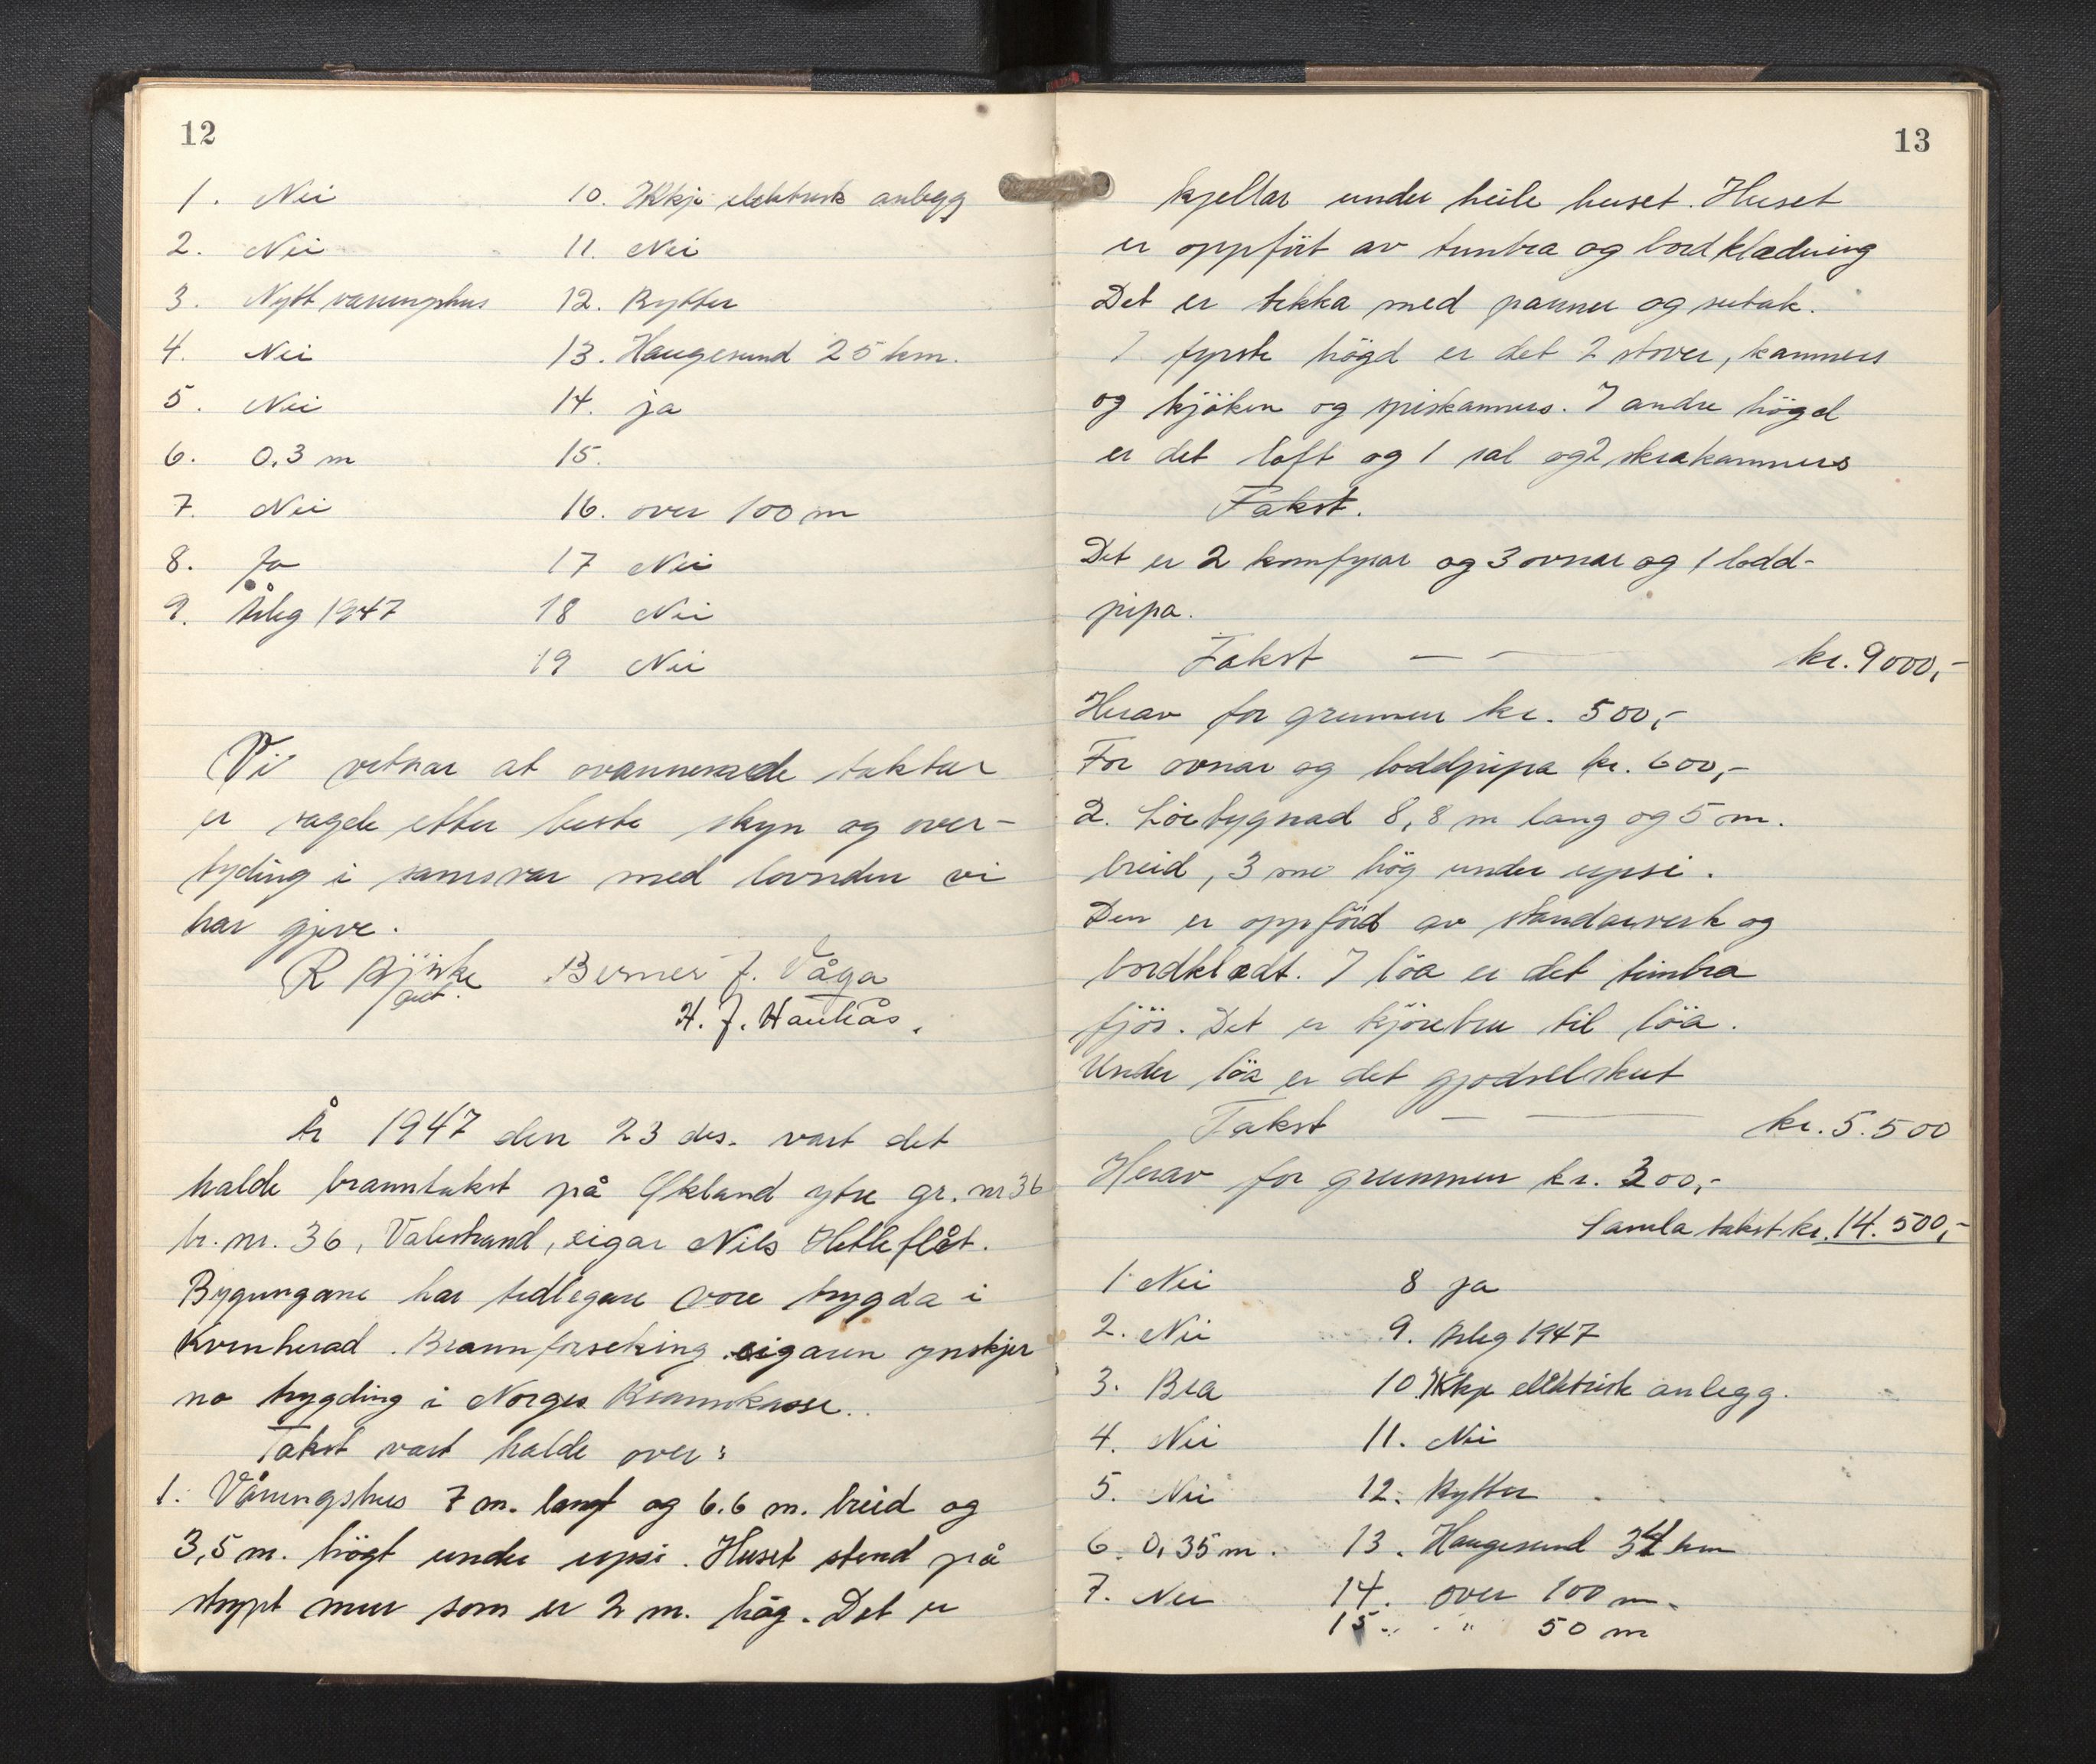 12
1. Nei
2. Nei
3. Nytt våningshus
4. Nei
5. Nei
6. 0.3 m
7. Nei
8. Ja
9. Årleg 1947
10. Ikkje elektrisk anlegg
11. Nei
12. Bytter
13. Haugesund 25 km.
14. ja
15.
16. over 100 m
17 Nei
18 Nei
19 Nei
Vi vitnar at ovannemnde takstar
er sagde etter beste skyn og over-
tyding i samsvar med lovnden vi
har gjeve.
R Berner J. Våga
H. J. Haukås.
År 1947 den 23 des. vart det
halde branntakst på Økland ytre gr. nr 36
br. nr. 36, Valestrand, eigar Nils Hetleflåt.
Bygningane har tidlegare vore trygda i
Kvinherad Brannforseking eigaren ynskjer
no trygding i Norges Brannkasse.
Takst vart halde over:
1. Våningshus 7 m. langt og 6.6 m. breid og
3,5 m. högt under upsi. Huset stend på
støypt mur som er 2 m. høg. Det er
13
kjellar under heile huset. Huset
er oppfört av timbra og bordklædning
Det er tekka med panner og sutak.
I fyrste högd er det 2 stover, kammers
og kjöken og spiskammers. I andre högd
er det loft og 1 sal og 2 skråkammers
Takst.
Det er 2 komfyrar og 3 ovnar og 1 lodd-
pipa.
Takst — — kr. 9000,-
Herav for grunnen kr. 500,-
For ovnar og loddpipa kr. 600,-
2. Löebygnad 8,8 m lang og 5 m.
breid, 3 m hög under upsi.
Den er oppförd av standarverk og
bordklædt. I löa er det timbra
fjös. Det er kjörebru til löa.
Under löa er det gjødselskut
Takst — — kr. 5.500
Herav for grunnen kr. 300,-
Samla takst kr. 14.500,-
1. Nei
2. Nei
3. Bra
4. Nei
5. Nei
6. 0,35 m.
7. Nei
8 ja
9. Årleg 1947
10 Ikkje elektrisk anlegg.
11. Nei
12. Bytter
13. Haugesund 34 km
14. over 100 m.
15. " 50 m